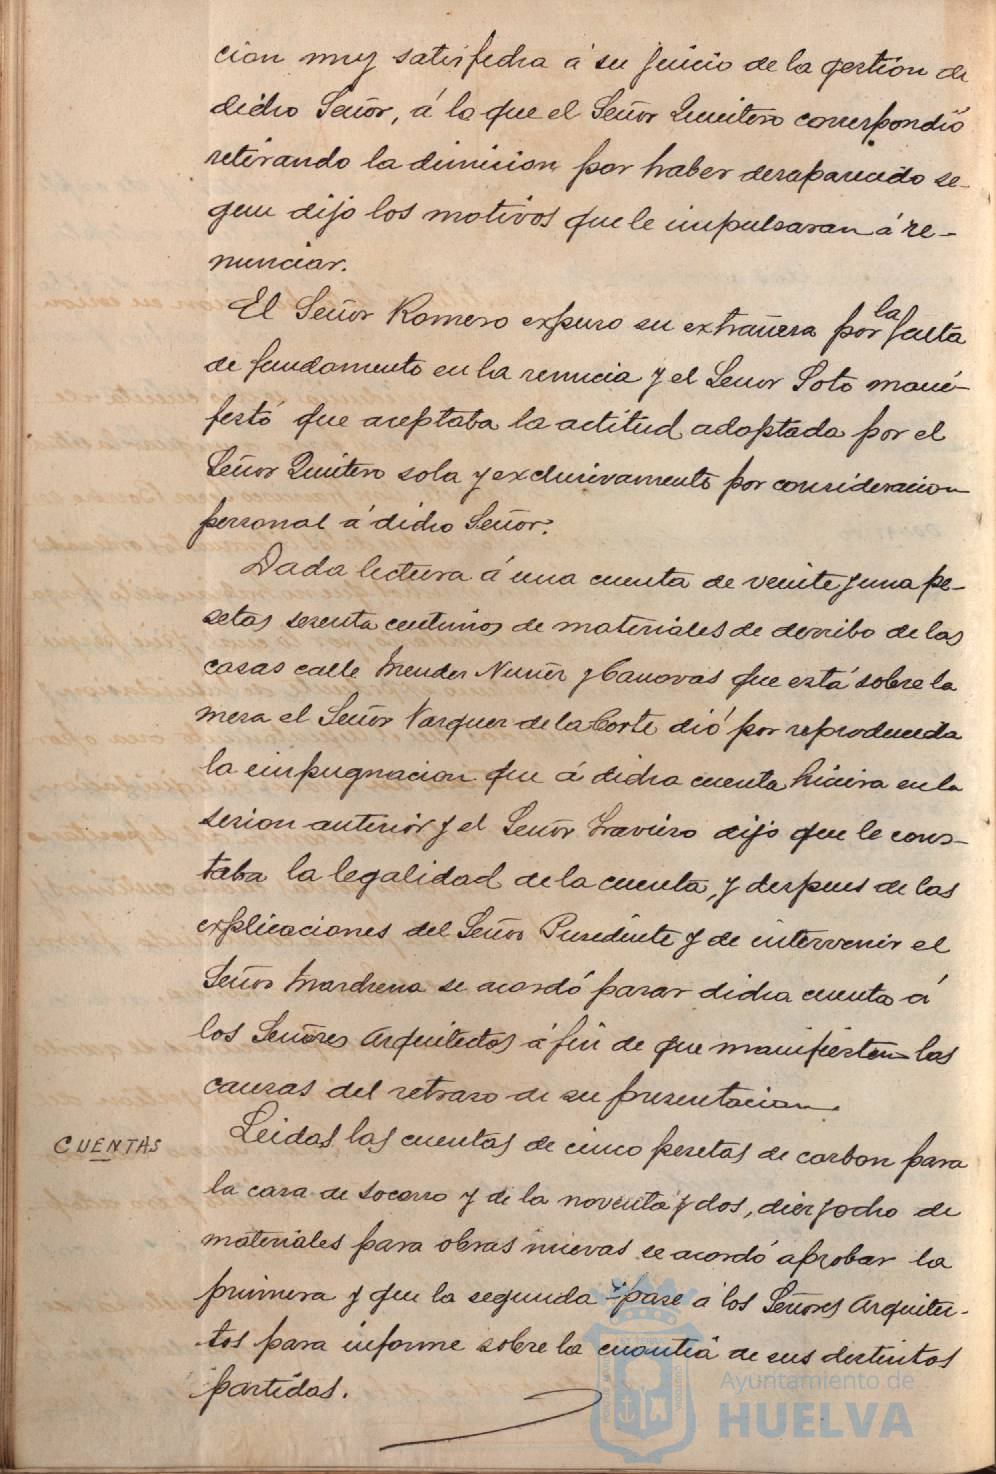 cion muy satisfecha á su juicio de la gestion de
dicho Señor, á lo que el Señor Quintero correspondió
retirando la dimision por haber desaparecido se-
gun dijo los motivos que le impulsaran á re-
nunciar.
El Señor Romero expuso su extrañesa por la falta
de fundamento en la renuncia y el Señor Soto mani-
festó que aceptaba la actitud adoptada por el
Señor Quintero sola y exclusivamente por consideracion
personal á dicho Señor.
Dada lectura á una cuenta de veinte y una pe-
setas sesenta centimos de materiales de derribo de las
casas calle Mendez Nuñez y Canovas que está sobre la
mesa el Señor Vazquez de la Corte dió por reproducida
la impugnacion que á dicha cuenta hiciera en la
sesion anterior y el Señor Travieso dijo que le cons-
taba la legalidad de la cuenta, y despues de las
explicaciones del Señor Presidente y de intervenir el
Señor Marchena se acordó pasar dicha cuenta á
los Señores Arquitectos á fin de que manifiesten las
causas del retraso de su presentacion.
CUENTAS
Leidas las cuentas de cinco pesetas de carbon para
la casa de socorro y de la noventa y dos, diez y ocho de
materiales para obras nuevas se acordó aprobar la
primera y que la segunda pase á los Señores Arquitec-
tos para informe sobre la cuantia de sus distintas
partidas.
Ayuntamiento de
HUELVA